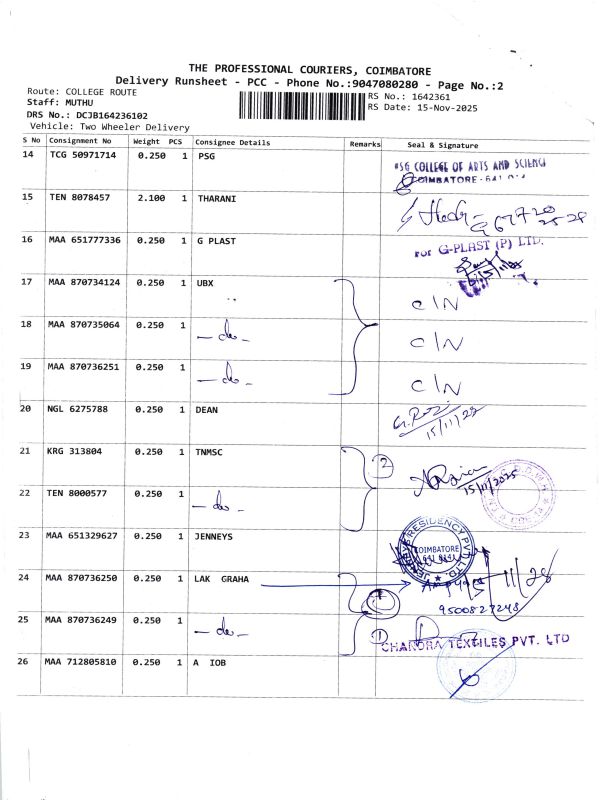 THE PROFESSIONAL COURIERS, COIMBATORE
Delivery Runsheet - PCC - Phone No.:9047080280 - Page No.:2
Route: COLLEGE ROUTE
RS No.: 1642361
Staff: MUTHU
RS Date: 15-Nov-2025
DRS No.: DCJB164236102
Vehicle: Two Wheeler Delivery
S No Consignment No Weight PCS Consignee Details Remarks Seal & Signature
14 TCG 50971714 0.250 1 PSG
PSG COLLEGE OF ARTS AND SCIENCE
COIMBATORE - 641 014
15 TEN 8078457 2.100 1 THARANI
16 MAA 651777336 0.250 1 G PLAST
For G-PLAST (P) LTD.
15/11/25
17 MAA 870734124 0.250 1 UBX
C/N
18 MAA 870735064 0.250 1 - do -
C/N
19 MAA 870736251 0.250 1 - do -
C/N
20 NGL 6275788 0.250 1 DEAN
15/11/25
21 KRG 313804 0.250 1 TNMSC
2
15/11/2025
22 TEN 8000577 0.250 1 - do -
23 MAA 651329627 0.250 1 JENNEYS
JENNEYS RESIDENCY PVT. LTD.
COIMBATORE
24 MAA 870736250 0.250 1 LAK GRAHA
9500827248
25 MAA 870736249 0.250 1 - do -
1
CHANDRA TEXTILES PVT. LTD
26 MAA 712805810 0.250 1 A IOB